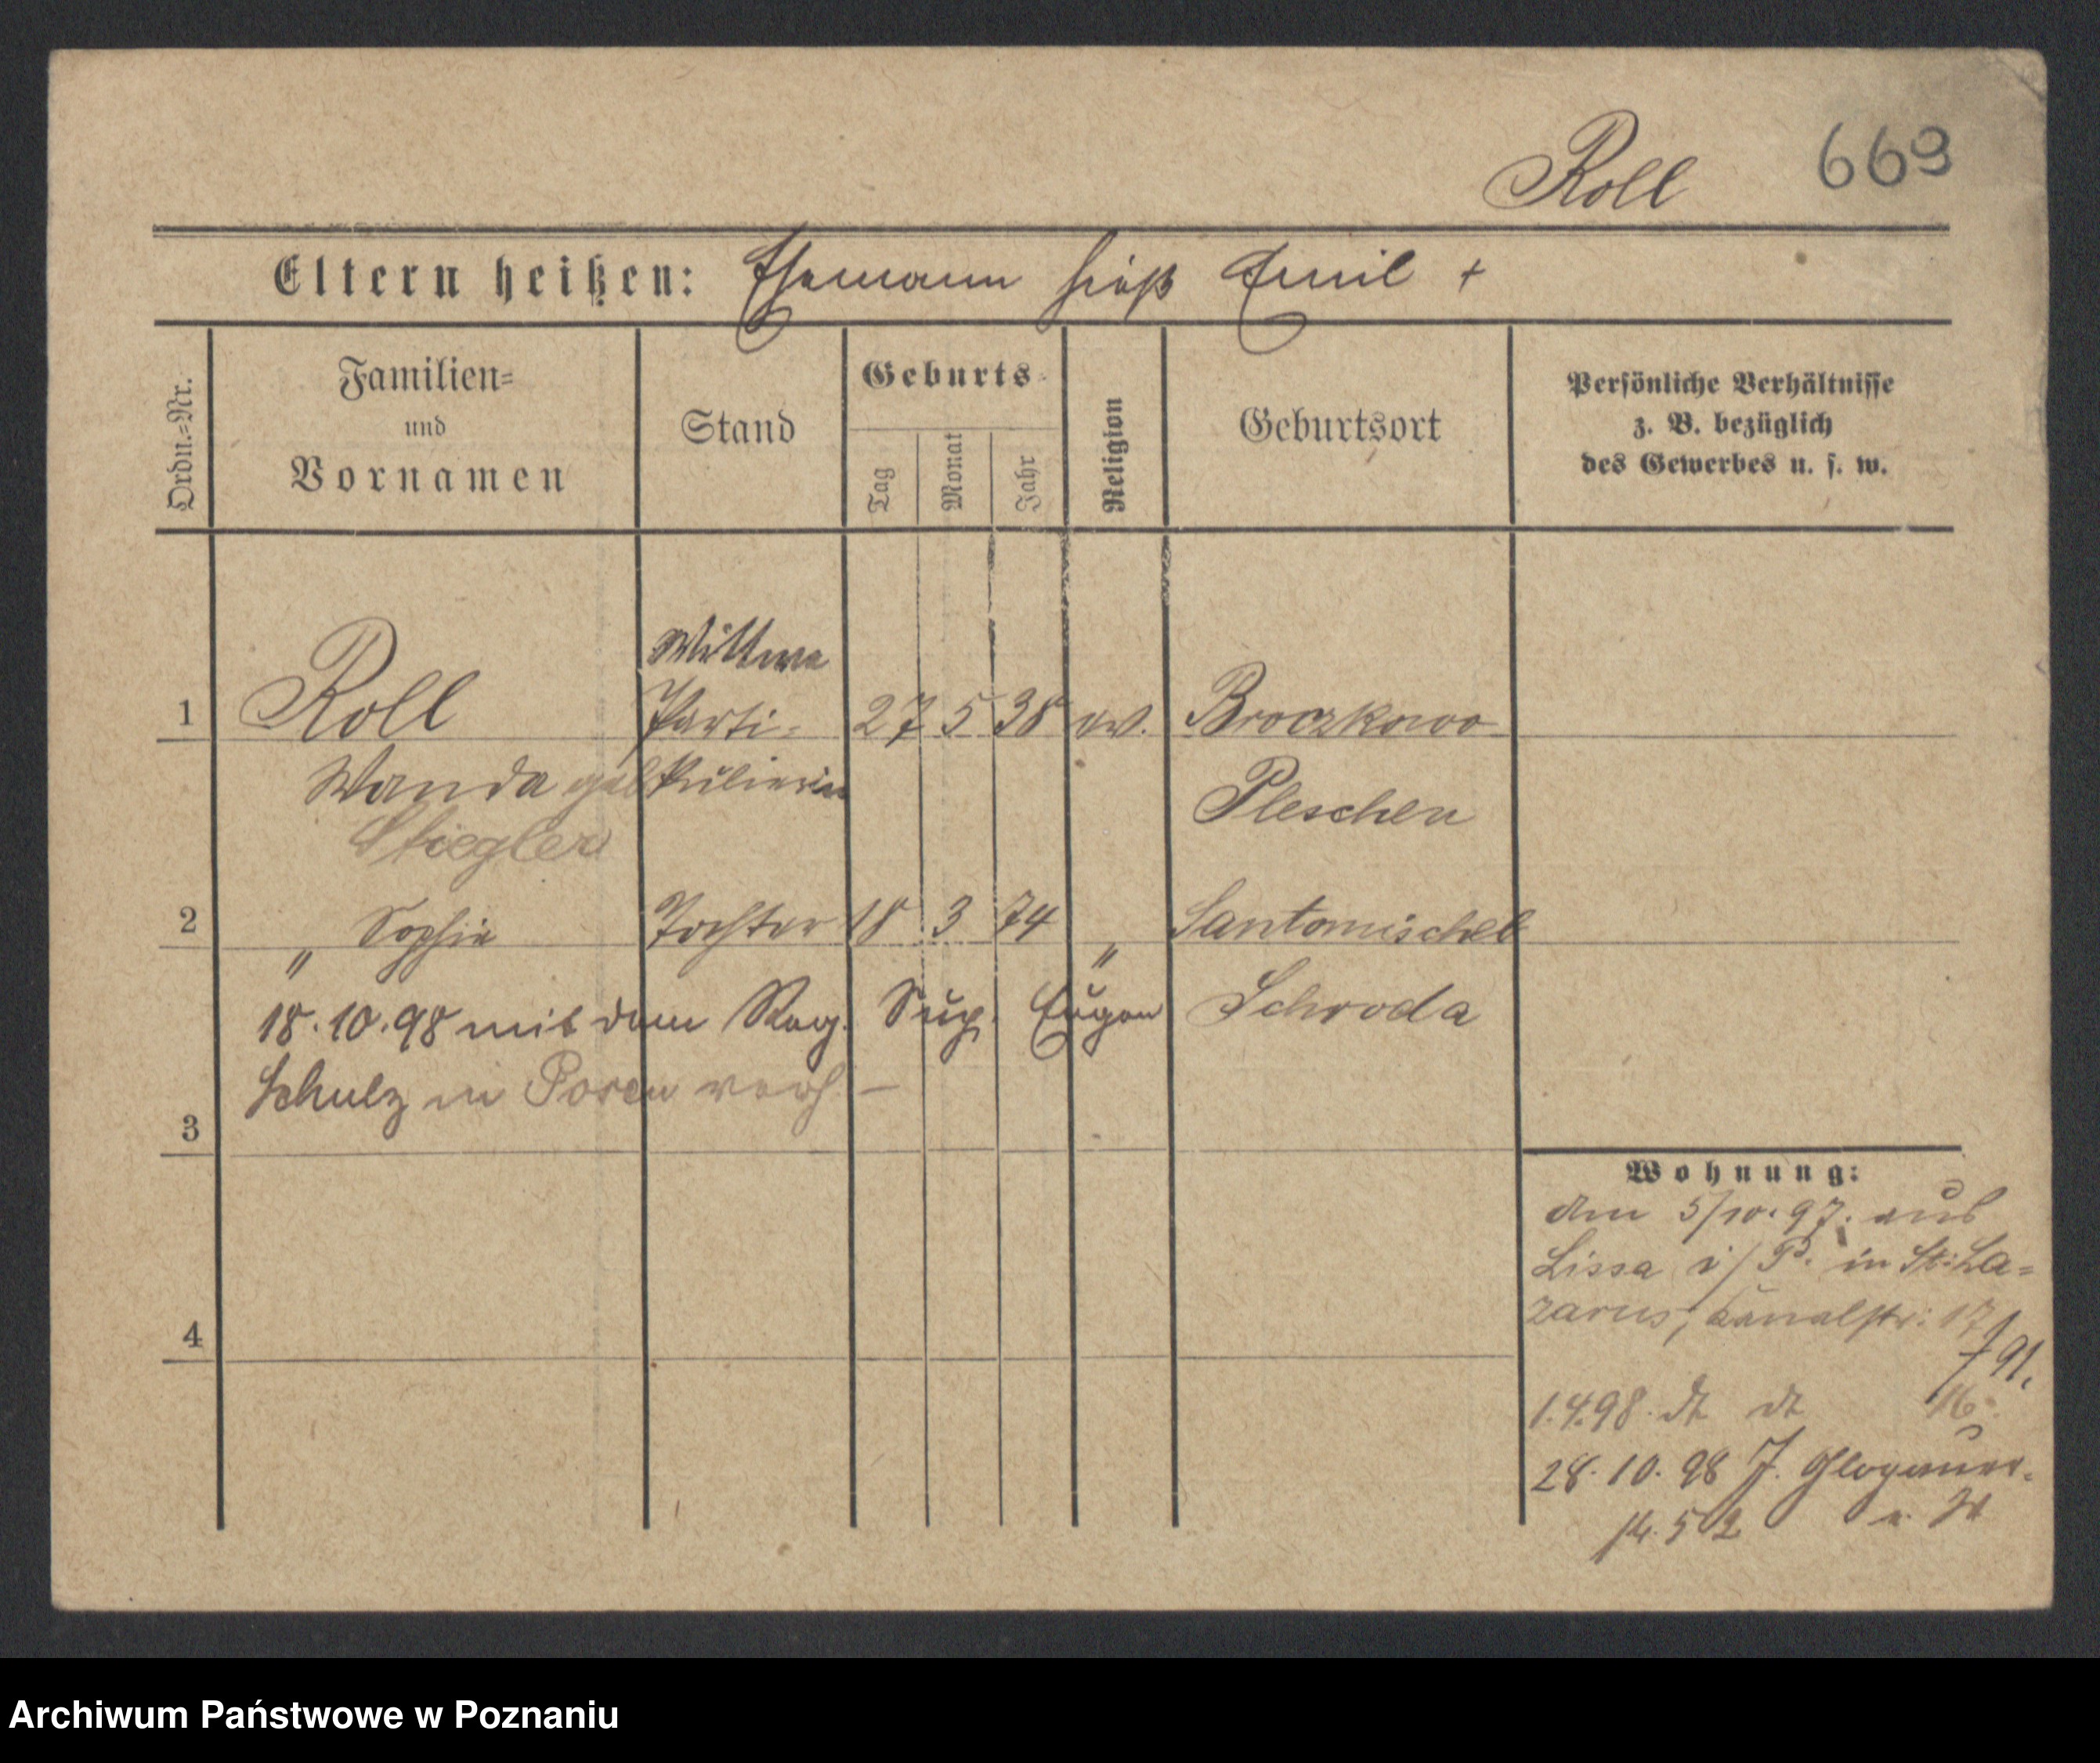 Roll 669
Eltern heißen: Ehemann hieß Emil +
Ordn.=Nr.
Familien=
und
Vornamen
Stand
Geburts=
Tag
Monat
Jahr
Religion
Geburtsort
Persönliche Verhältnisse
z. B. bezüglich
des Gewerbes u. s. w.
Wittwe
1 Roll Parti= 27 5 38 ev. Broczkowo
Wanda geb kulierin Pleschen
Stiegler
2 " Sophie Tochter 18 3 74 " Santomischel
18.10.98 mit dem Reg. Sup. Eugen Schroda
Schulz in Posen verh. –
3
Wohnung:
am 5/10.97. aus
Lissa i/P. in St. La=
zarus, Kanalstr: 17
4
1.4.98 dt dt 16.
28.10.98 J. Glogauer.
14.5 02
Archiwum Państwowe w Poznaniu